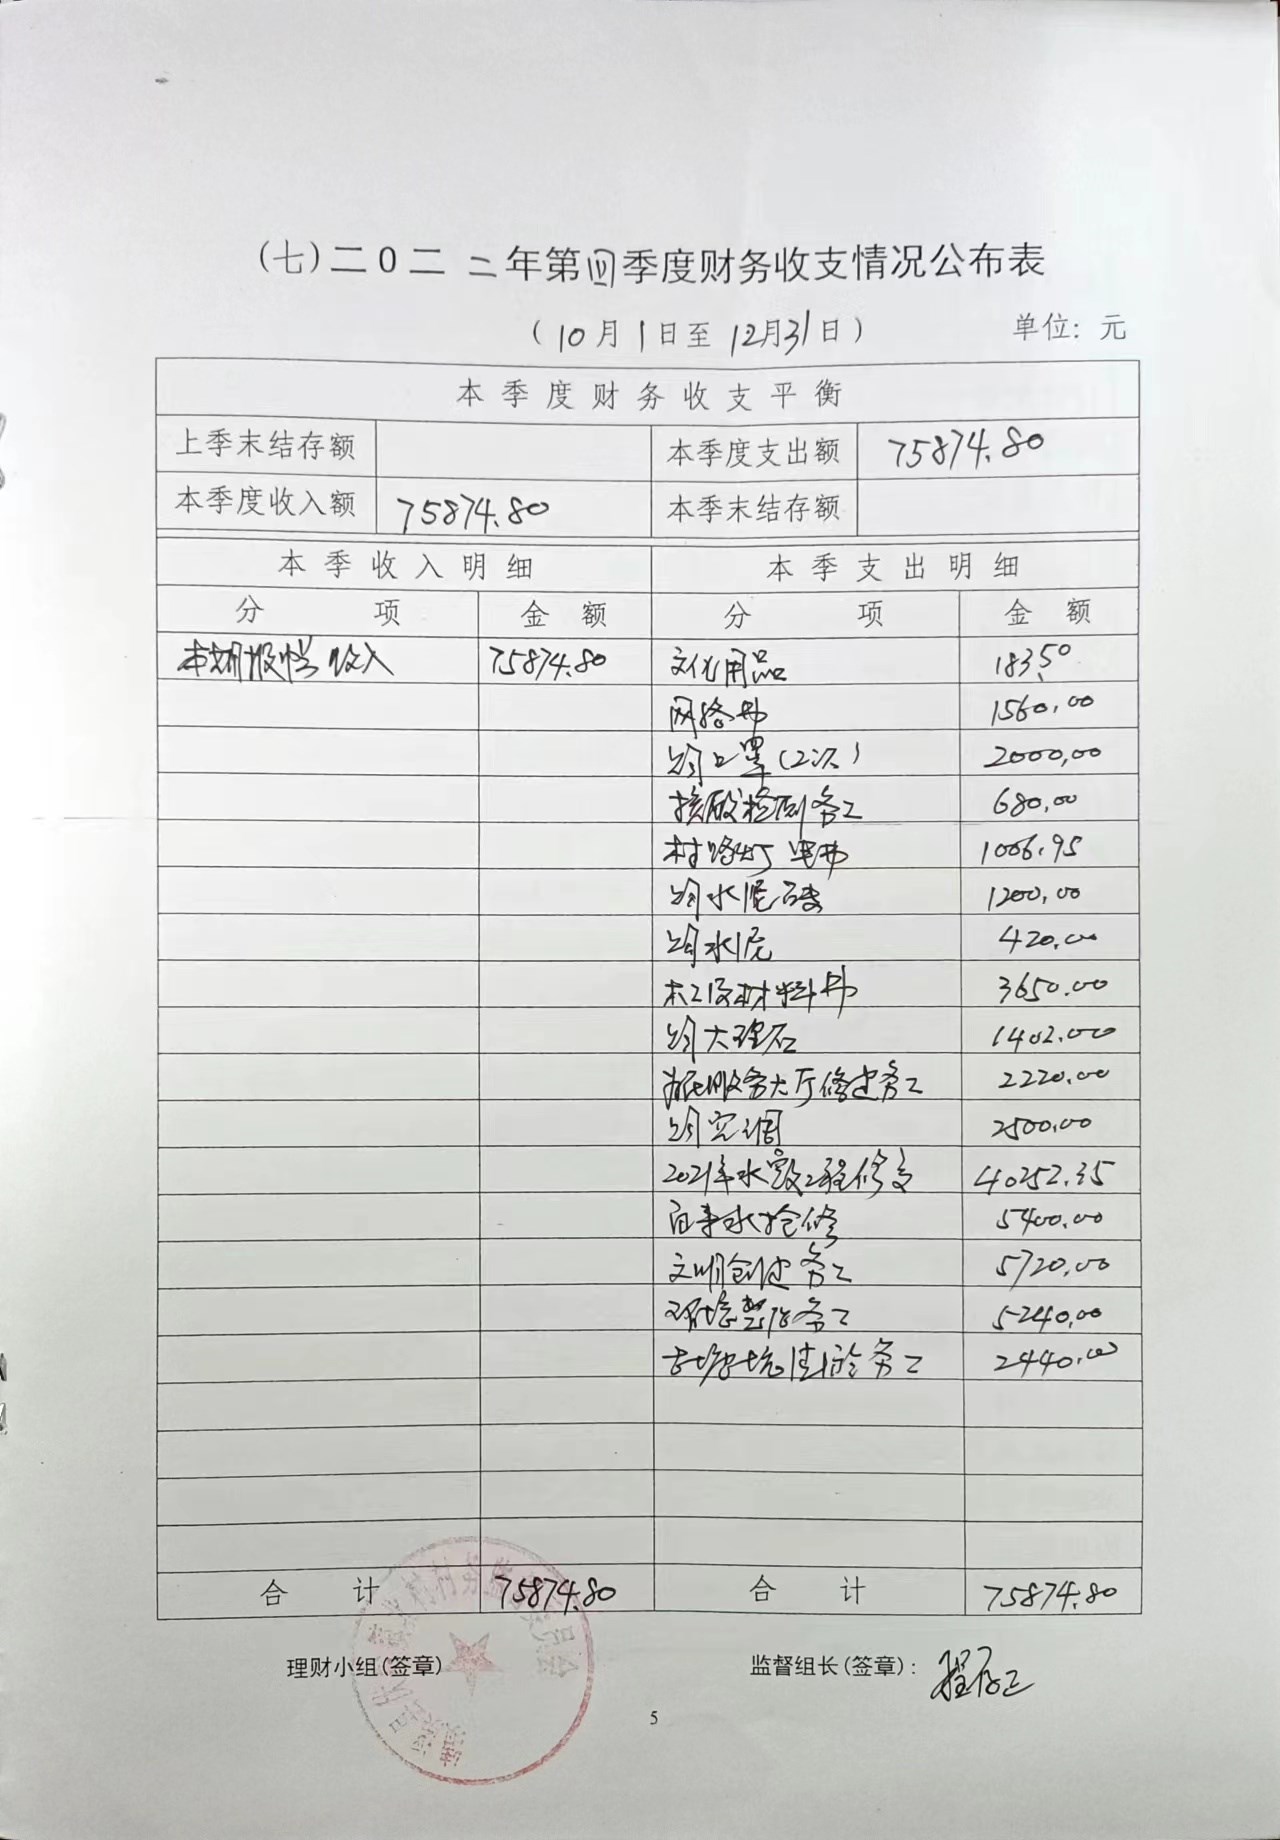 (七)二0二二年第四季度财务收支情况公布表
(10月1日至12月31日) 单位: 元
本季度财务收支平衡
上季末结存额 本季度支出额 75874.80
本季度收入额 75874.80 本季末结存额
本季收入明细 本季支出明细
分项 金额 分项 金额
本期报账收入 75874.80 文化用品 183.50
网络费 1560.00
购口罩(2次) 2000.00
核酸检测务工 680.00
村路灯电费 1006.95
购水泥砖 1200.00
购水泥 420.00
木工及材料费 3650.00
购大理石 1402.00
服务大厅修建务工 2220.00
购空调 2500.00
2021年水毁工程修复 40252.35
自来水抢修 5400.00
文明创建务工 5720.00
环境整治务工 5240.00
清淤务工 2440.00
合计 75874.80 合计 75874.80
理财小组(签章) 监督组长(签章):
5